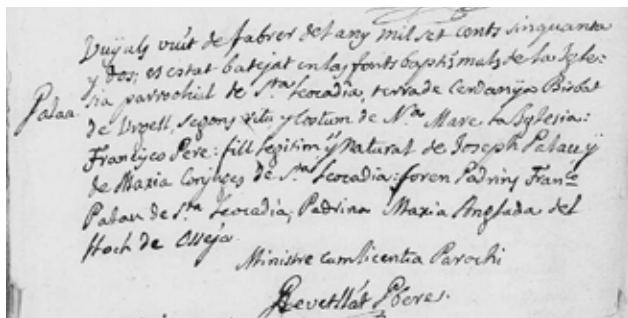 Vuÿ als vuit de fabrer del any mil set cents sinquanta
y dos; es estat batejat en las fonts baptismals de la Igle-
Palau.
sia parrochial de Sta Leocadia, terra de Cerdanya Bisbat
de Urgell, segons ritu y Costum de Nra Mare la Iglesia:
Francisco Pere: fill legitim y natural de Joseph Palau y
de Maria de Sta Leocadia: foren Padrins Franco
Palau de Sta Leocadia, Padrina Maria Anglada del
lloch de Osseja.
Ministre cum licentia Parochi
Revetllat Pbere.